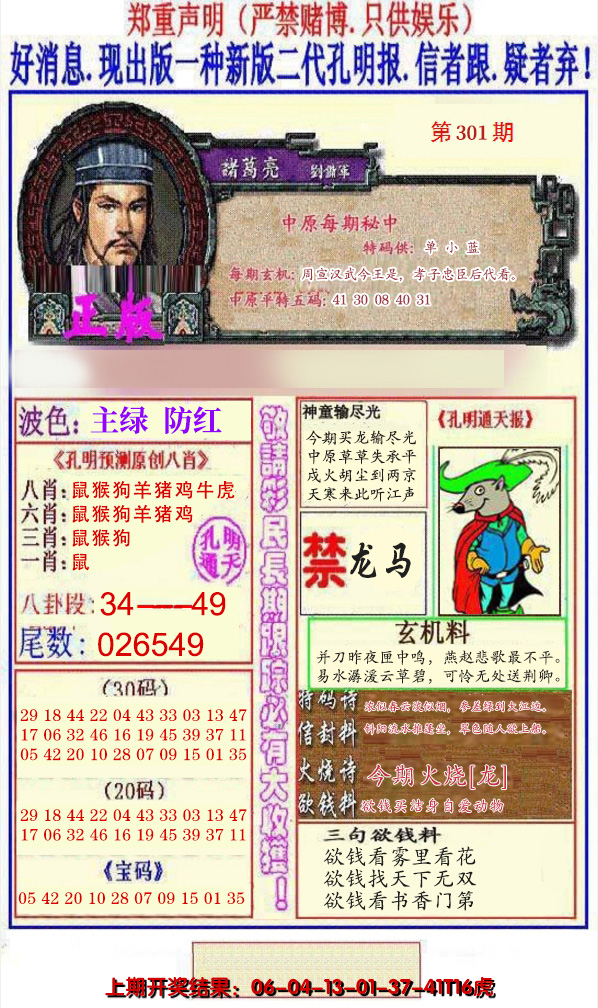 郑重声明（严禁赌博.只供娱乐）
好消息.现出版一种新版二代孔明报.信者跟.疑者弃！
第301期
諸葛亮 劉備軍
中原每期秘中
特码供：单小蓝
每期玄机：周宣汉武今王是，孝子忠臣后代看。
中原平特五码：41 30 08 40 31
正版
波色：主绿 防红
《孔明预测原创八肖》
八肖：鼠猴狗羊猪鸡牛虎
六肖：鼠猴狗羊猪鸡
三肖：鼠猴狗
一肖：鼠
孔明
通天
八卦段：34——49
尾数：026549
（30码）
29 18 44 22 04 43 33 03 13 47
17 06 32 46 16 19 45 39 37 11
05 42 20 10 28 07 09 15 01 35
（20码）
29 18 44 22 04 43 33 03 13 47
17 06 32 46 16 19 45 39 37 11
《宝码》
05 42 20 10 28 07 09 15 01 35
敬請彩民長期跟踪必有大收獲！
神童输尽光
今期买龙输尽光
中原草草失承平
戍火胡尘到两京
天寒来此听江声
《孔明通天报》
禁 龙马
玄机料
并刀昨夜匣中鸣，燕赵悲歌最不平。
易水潺湲云草碧，可怜无处送荆卿。
特码诗 浓似春云淡似烟，参差绿到大江边。
信封料 斜阳流水推篷坐，翠色随人欲上船。
火烧诗 今期火烧[龙]
欲钱料 欲钱买洁身自爱动物
三句欲钱料
欲钱看雾里看花
欲钱找天下无双
欲钱看书香门第
上期开奖结果：06-04-13-01-37-41T16虎